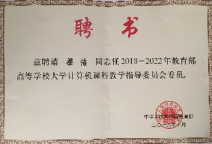 聘书
兹聘请 同志任2018-2022年教育部
高等学校大学计算机课程教学指导委员会委员。